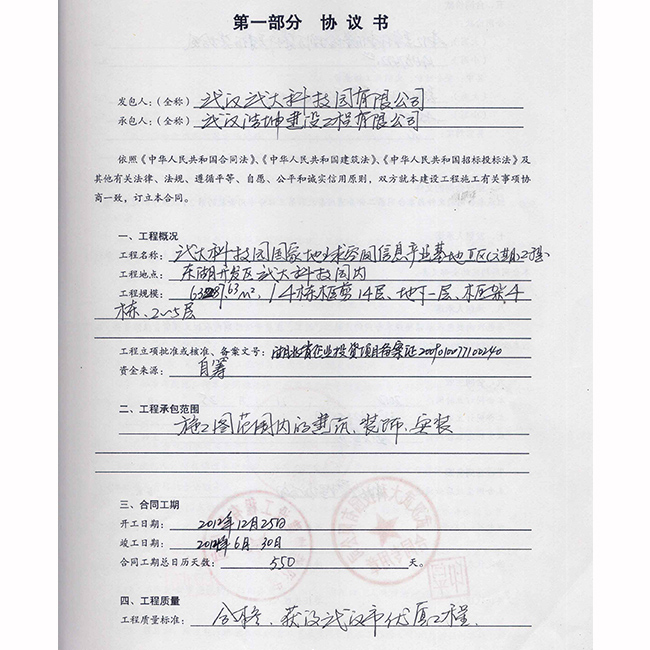 第一部分 协议书
发包人：(全称) 武汉武大科技园有限公司
承包人：(全称) 武汉浩坤建设工程有限公司
依照《中华人民共和国合同法》、《中华人民共和国建筑法》、《中华人民共和国招标投标法》及
其他有关法律、法规、遵循平等、自愿、公平和诚实信用原则，双方就本建设工程施工有关事项协
商一致，订立本合同。
一、工程概况
工程名称：武大科技园国家地球空间信息产业基地II区(二期)工程
工程地点：东湖开发区武大科技园内
工程规模：m²，14栋框剪14层、地下一层、框架4
栋、2~5层
工程立项批准或核准、备案文号：湖北省企业投资项目备案证2009010077100240
资金来源：自筹
二、工程承包范围
施工图范围内的建筑、装饰、安装
三、合同工期
开工日期：2012年12月25日
竣工日期：2014年6月30日
合同工期总日历天数：550天。
四、工程质量
工程质量标准：合格、获得武汉市优质工程。